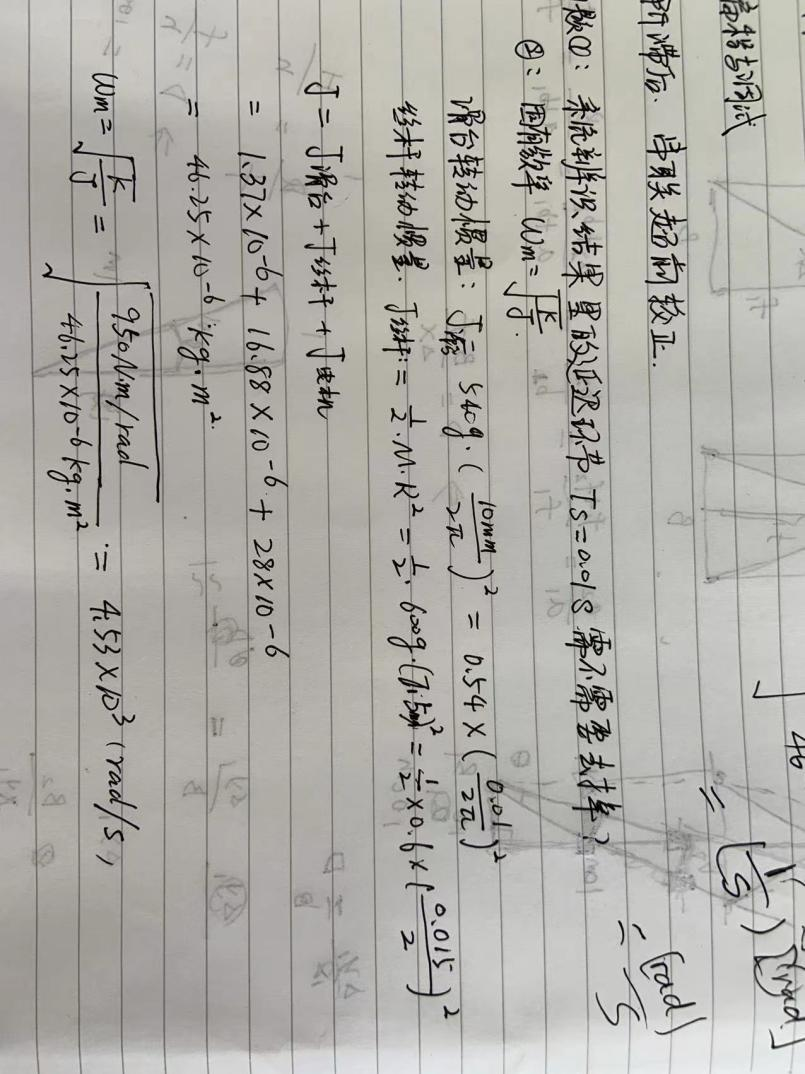 高精与调试
所滞后. 串联超前校正.
题①: 系统辨识结果里的延迟环节 Ts=0.01s 需不需要去掉?
②: 固有频率 ωm=√(K/J).
滑台转动惯量: J滑台= 540g·(10mm/2π)² = 0.54×(0.01/2π)²
丝杆转动惯量. J丝杆 = 1/2·M·R² = 1/2·600g·(7.5mm)² = 1/2×0.6×(0.015/2)²
J = J滑台 + J丝杆 + J电机
= 1.37×10⁻⁶ + 16.88×10⁻⁶ + 28×10⁻⁶
= 46.25×10⁻⁶ kg·m².
ωm = √(K/J) = √(950Nm/rad / 46.25×10⁻⁶kg·m²) = 4.53×10³ (rad/s,
46
= (1/s) [rad]
= (rad)/s